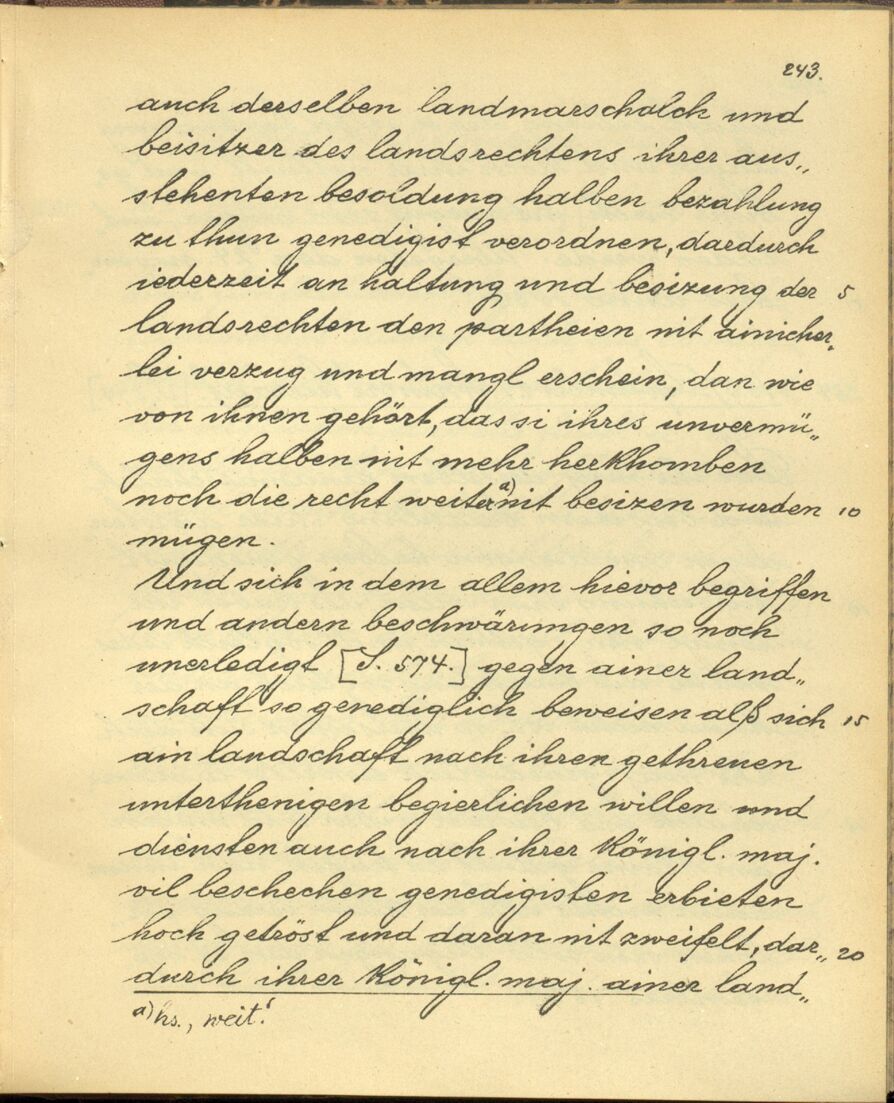 243.
auch derselben landmarschalch und
beisitzer des landsrechtens ihrer aus„
stehenten besoldung halben bezahlung
zu thun genedigist verordnen, dardurch
iederzeit an haltung und besizung der 5
landsrechten den partheien nit ainicher„
lei verzug und mangl erschein, dan wie
von ihnen gehört, das si ihres unvermü„
gens halben nit mehr herkhomben
noch die recht weiter a) nit besizen wurden 10
mügen.
Und sich in dem allem hievor begriffen
und andern beschwärungen so noch
unerledigt [S. 574.] gegen ainer land„
schaft so genediglich beweisen alß sich 15
ain landschaft nach ihren gethreuen
unterthenigen begierlichen willen und
diensten auch nach ihrer Königl. maj.
vil beschechen genedigisten erbieten
hoch getröst und daran nit zweifelt, dar„ 20
durch ihrer Königl. maj. ainer land„
a) hs., weit.'